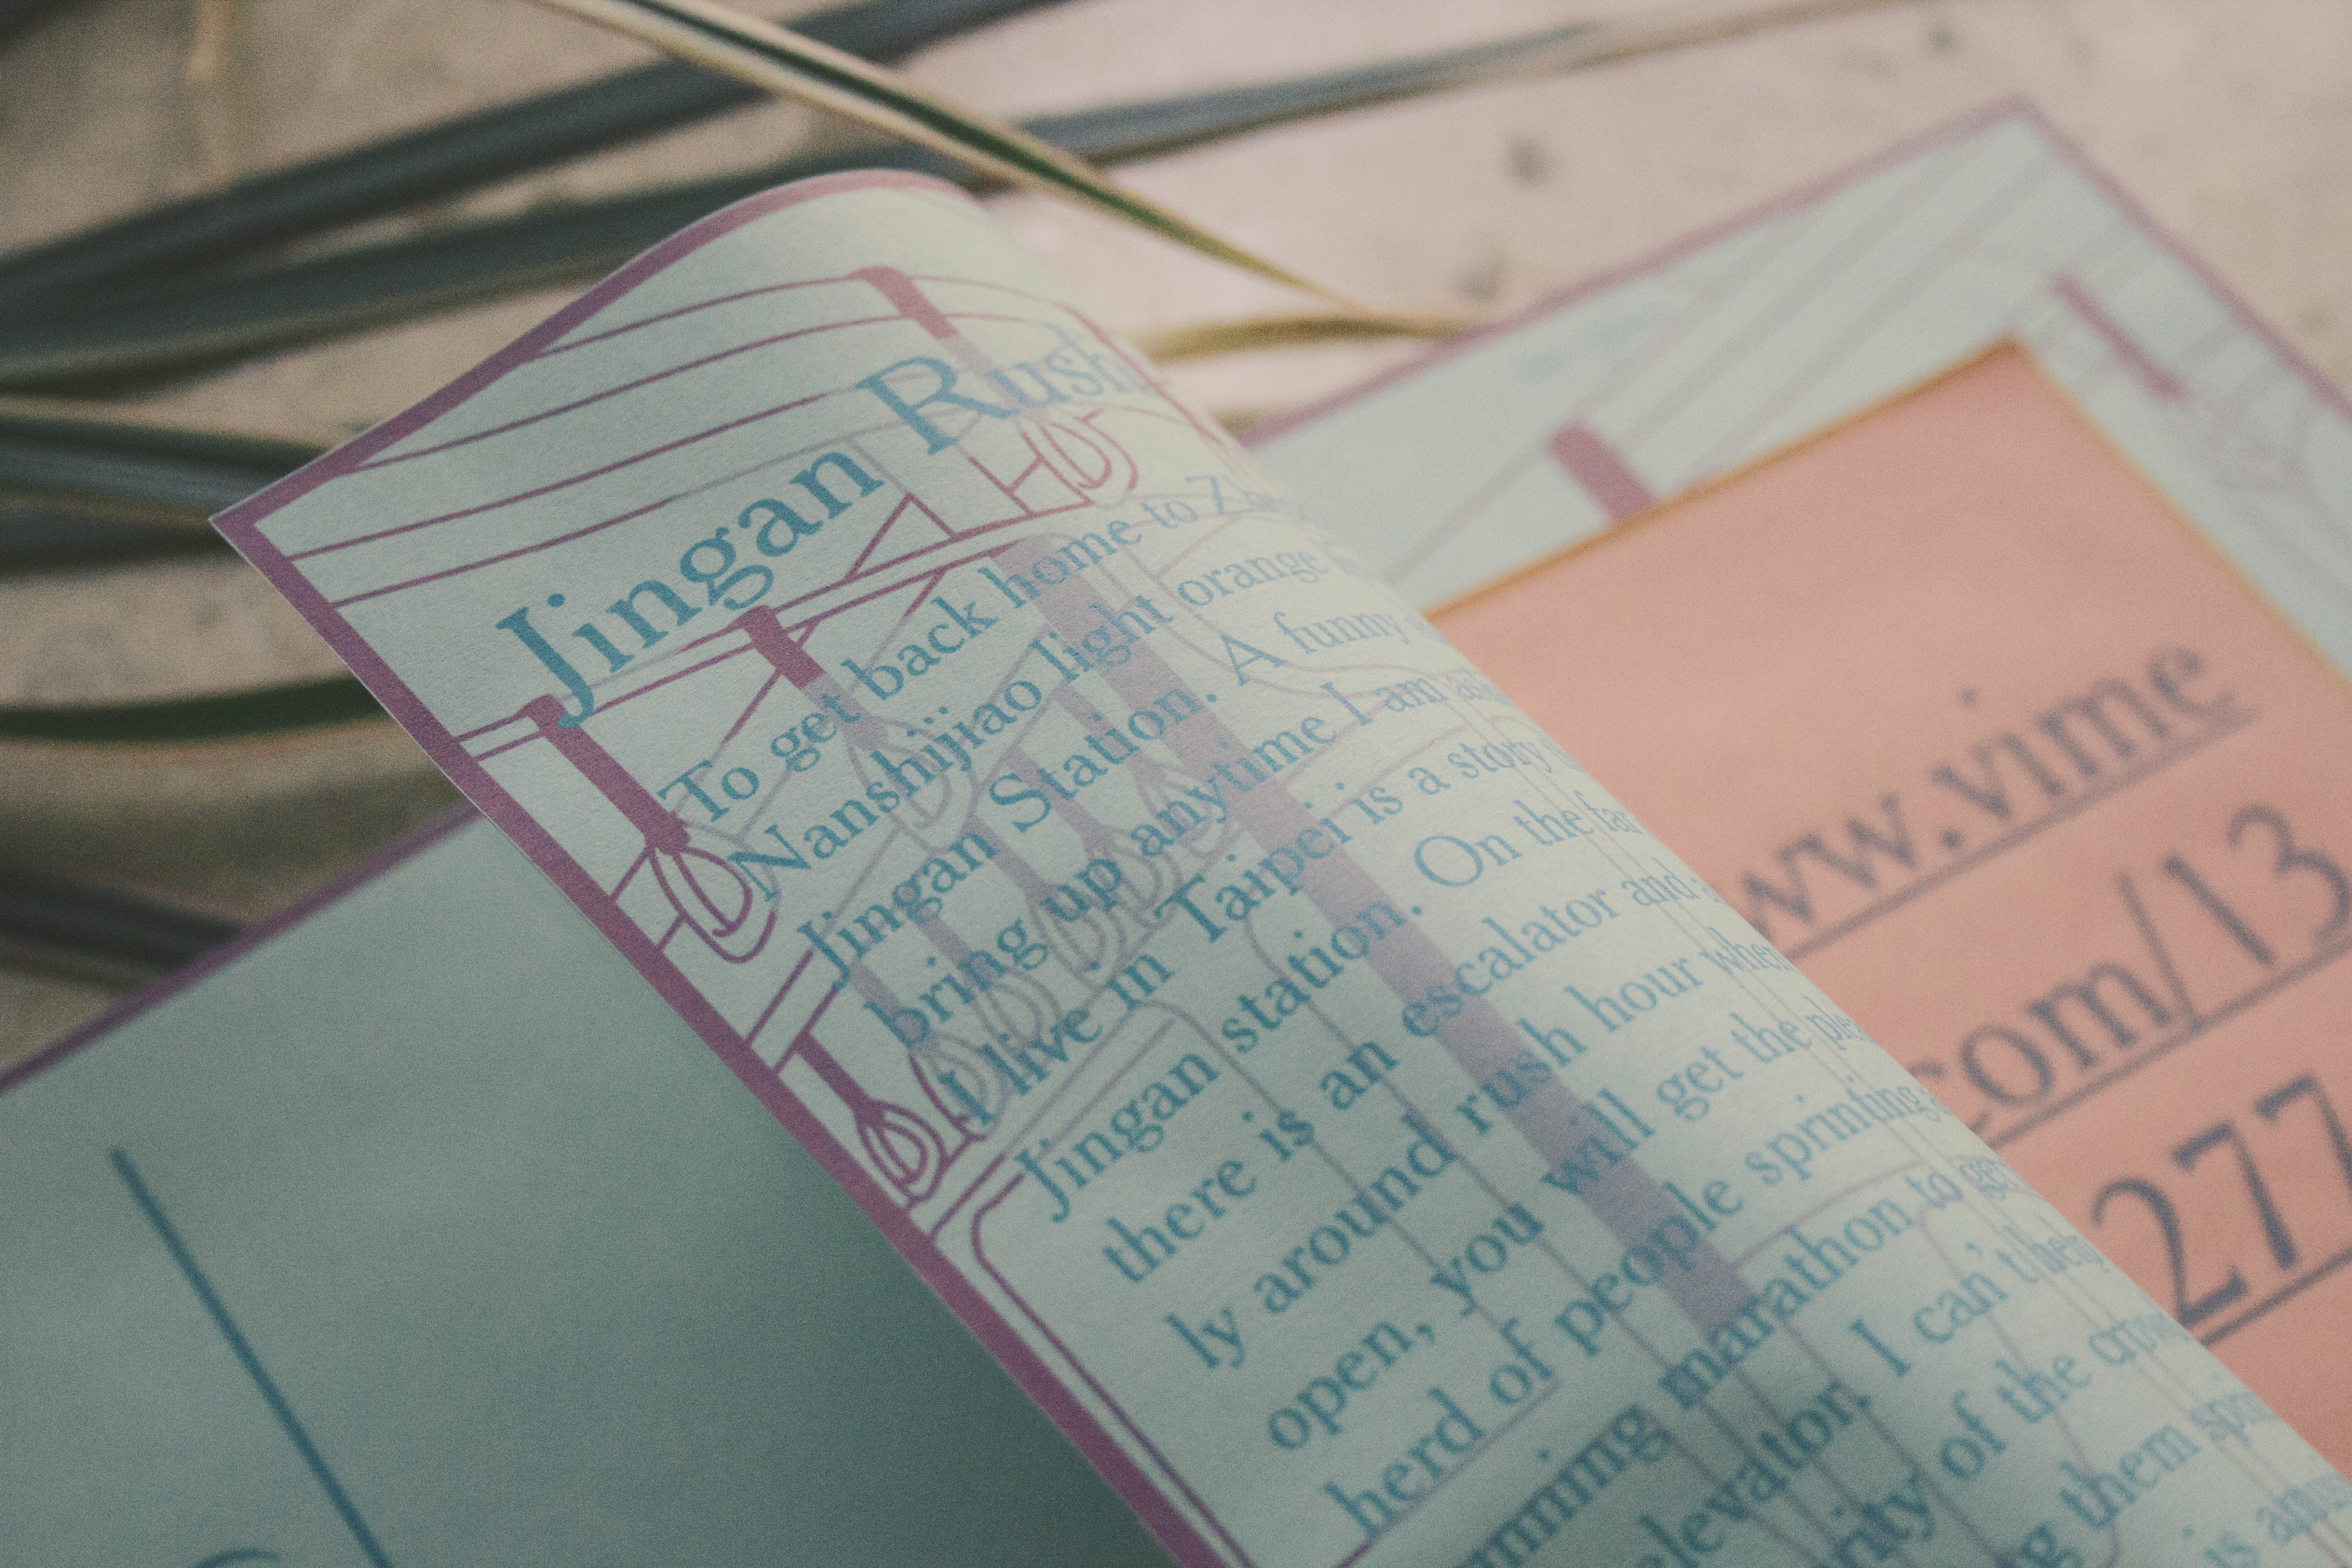 Jingan Rush
To get back home to
Nanshijiao light orange
Jingan Station. A funny
bring up anytime I am
I live in Taipei is a story
Jingan station. On the
there is an escalator and
ly around rush hour when
open, you will get the
herd of people sprinting
marathon to
elevator. I can't help
of the
them
is
www.vime
com/13
277